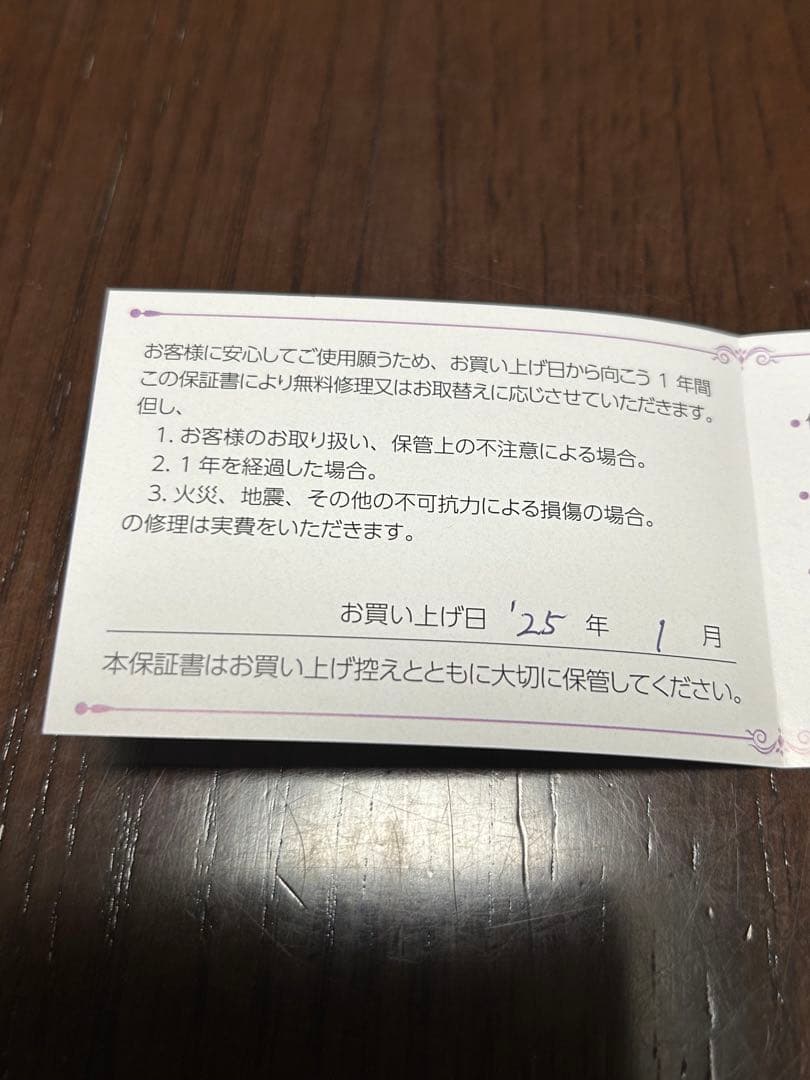 お客様に安心してご使用願うため、お買い上げ日から向こう1年間
この保証書により無料修理又はお取替えに応じさせていただきます。
但し、
1. お客様のお取り扱い、保管上の不注意による場合。
2. 1年を経過した場合。
3. 火災、地震、その他の不可抗力による損傷の場合。
の修理は実費をいただきます。
お買い上げ日 '25 年 1 月
本保証書はお買い上げ控えとともに大切に保管してください。